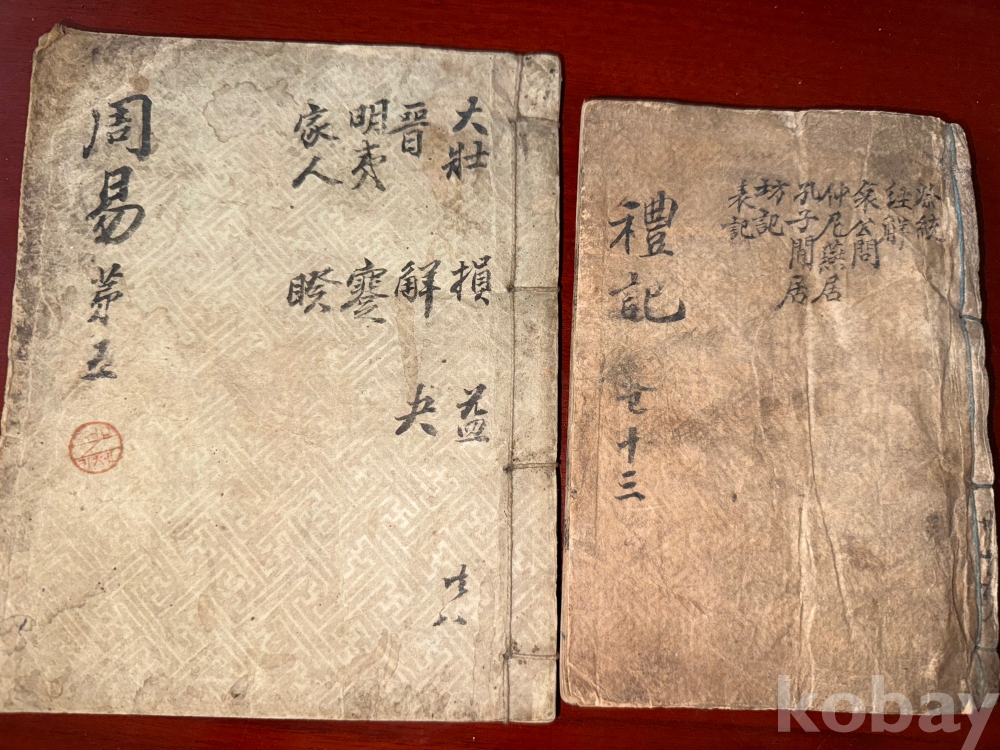 大壯 損 益 共八
晉 解 夬
明夷 蹇
家人 睽
周易 苐五
祭統
經解
哀公問
仲尼燕居
孔子間居
坊記
表記
禮記 卷十三
kobay